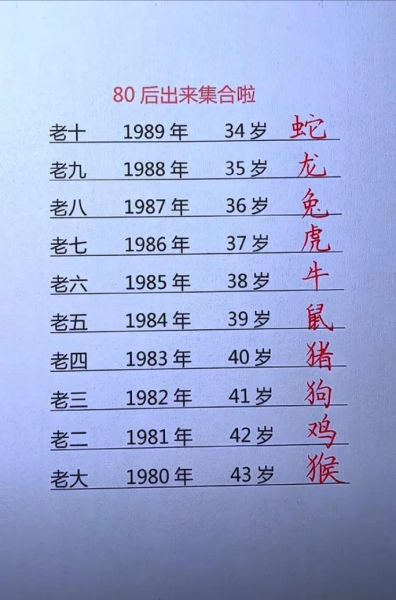 80 后出来集合啦
老十 1989 年 34 岁 蛇
老九 1988 年 35 岁 龙
老八 1987 年 36 岁 兔
老七 1986 年 37 岁 虎
老六 1985 年 38 岁 牛
老五 1984 年 39 岁 鼠
老四 1983 年 40 岁 猪
老三 1982 年 41 岁 狗
老二 1981 年 42 岁 鸡
老大 1980 年 43 岁 猴